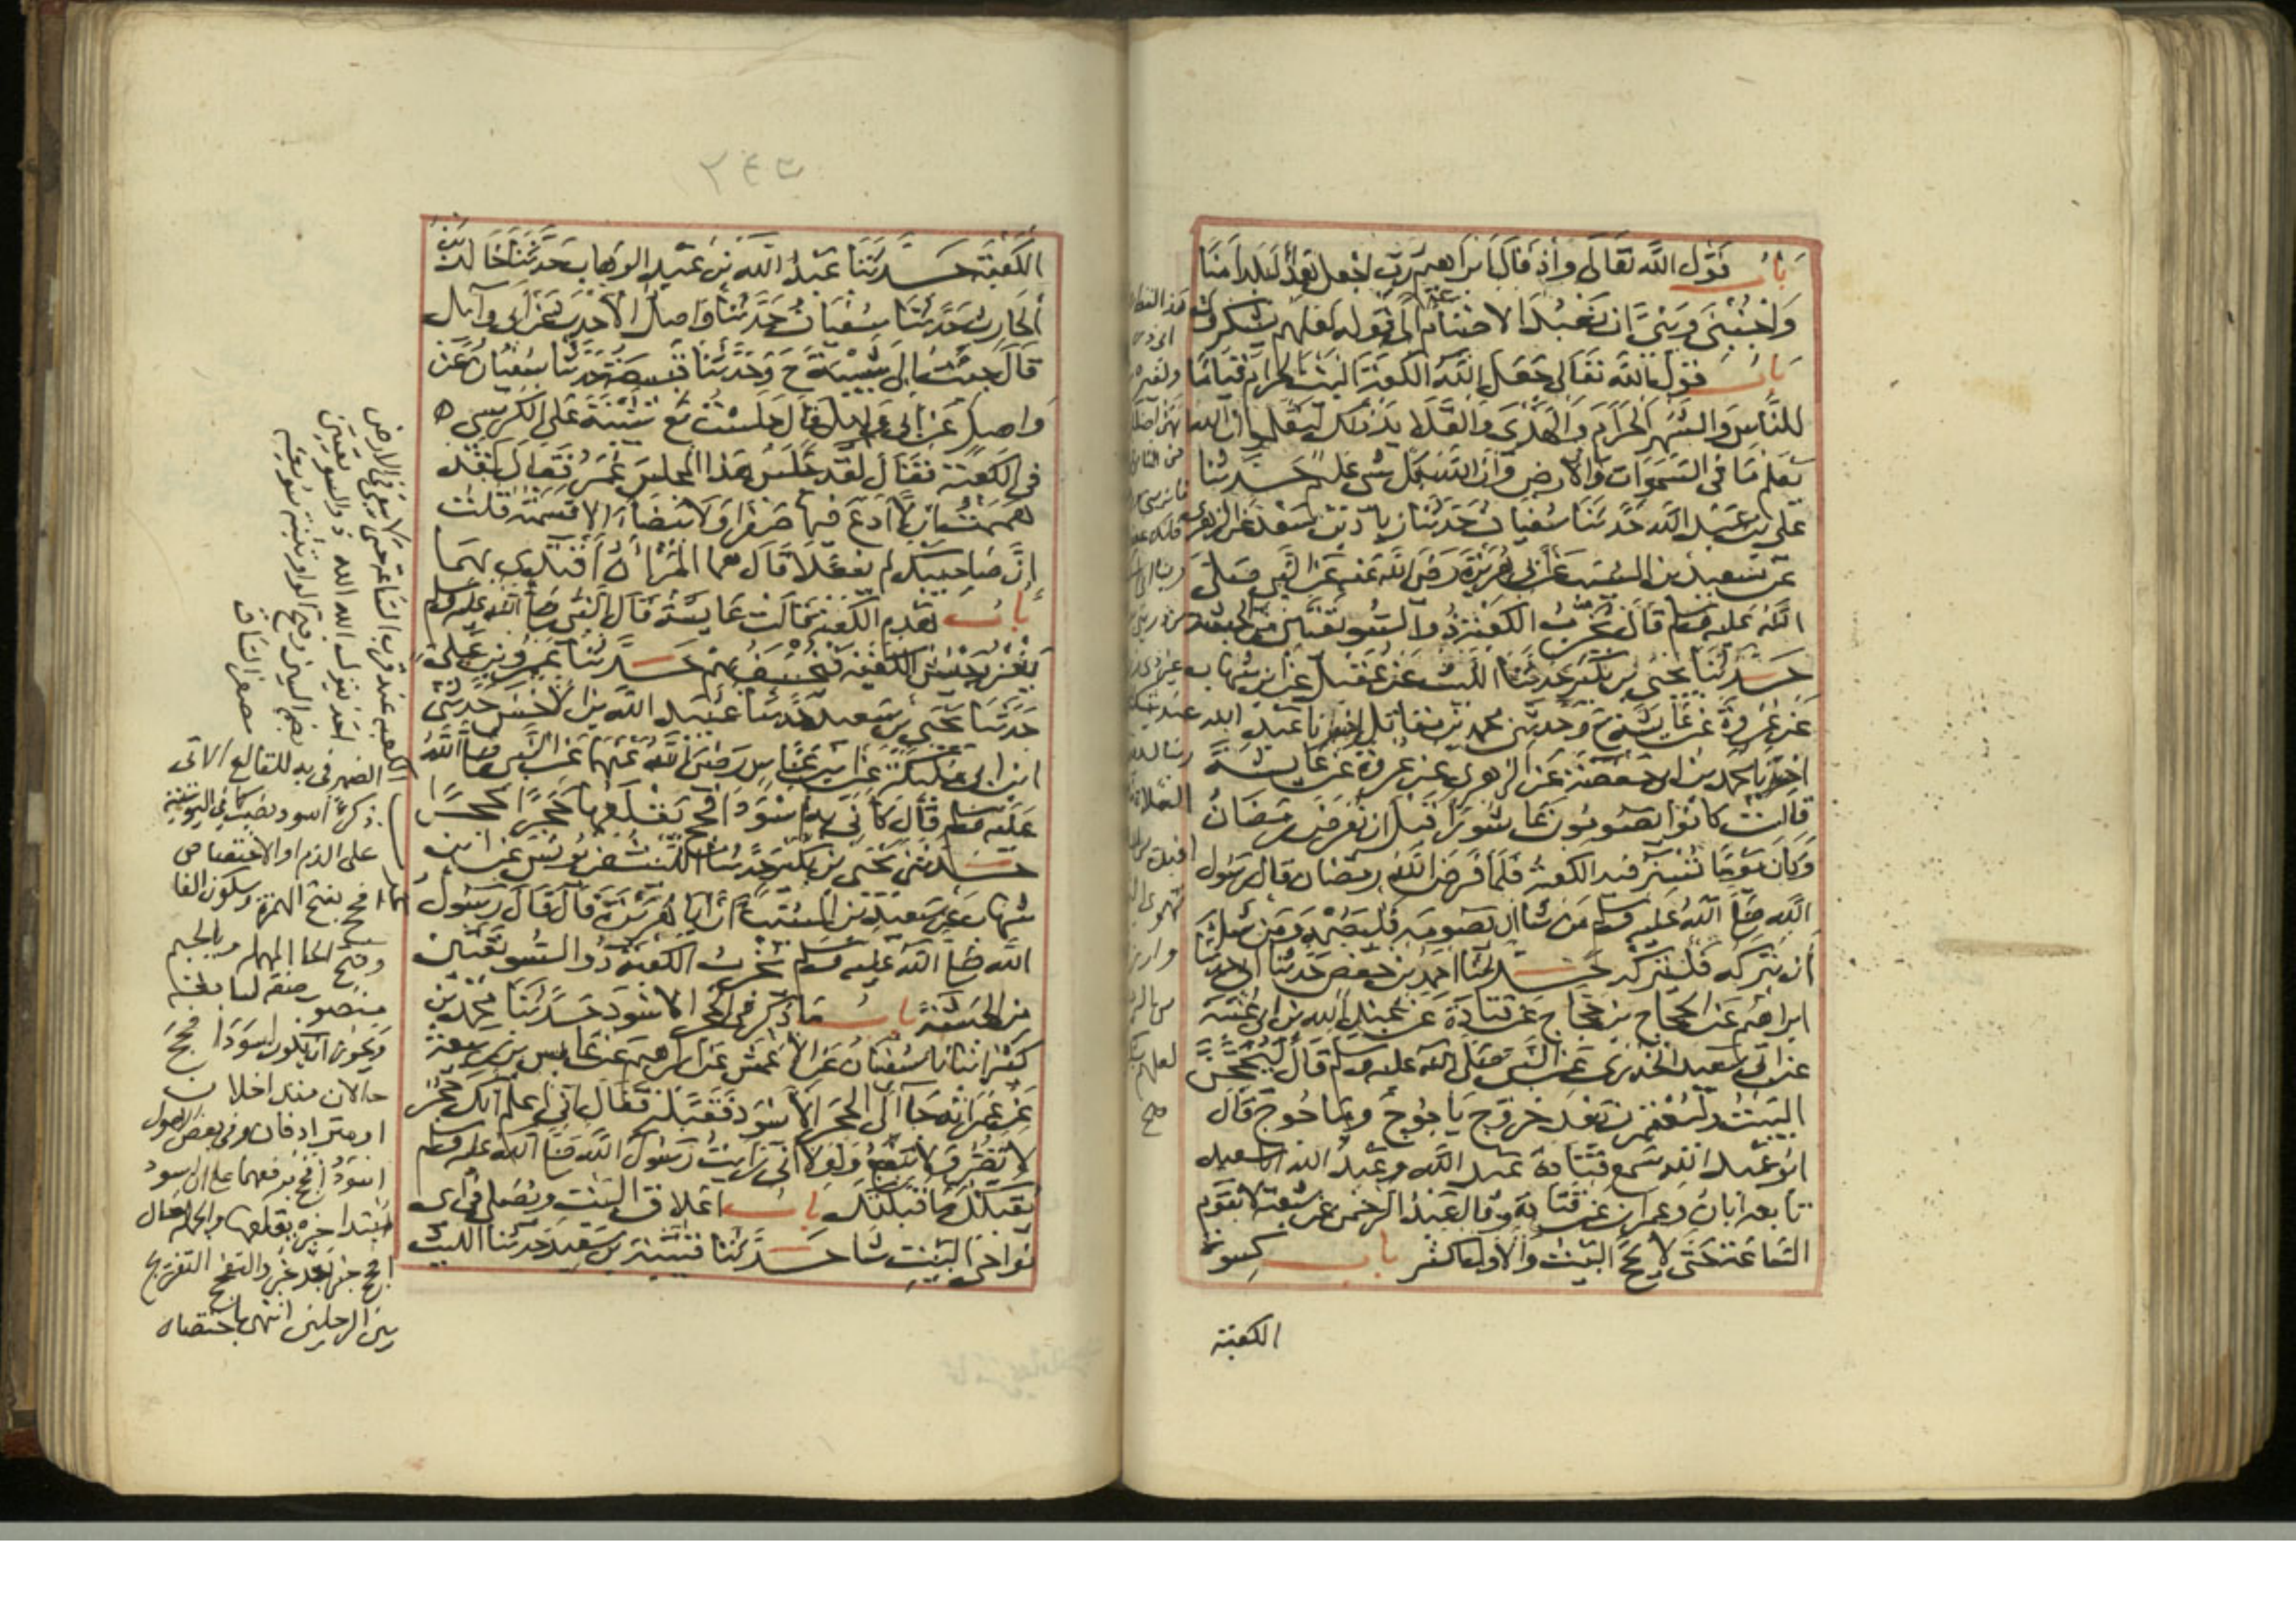 باب قول الله تعالى واذ قال ابراهيم رب اجعل هذا البلد امنا
واجنبني وبني ان نعبد الاصنام الى قوله لعلهم يشكرون
باب قول الله تعالى جعل الله الكعبة البيت الحرام قياما
للناس والشهر الحرام والهدي والقلائد ذلك لتعلموا ان الله
يعلم ما في السموات والارض وان الله بكل شي عليم حدثنا
علي بن عبد الله حدثنا سفيان حدثنا زياد بن سعد عن الزهري
عن سعيد بن المسيب عن ابي هريرة رضي الله عنه عن النبي صلى
الله عليه وسلم قال يخرب الكعبة ذو السويقتين من الحبشة
حدثنا يحيى بن بكير حدثنا الليث عن عقيل عن ابن شهاب
عن عروة عن عايشة ح وحدثني محمد بن مقاتل اخبرنا عبد الله
اخبرنا محمد بن ابي حفصة عن الزهري عن عروة عن عايشة
قالت كانوا يصومون عاشورا قبل ان يفرض رمضان
وكان يوما تستر فيه الكعبة فلما فرض الله رمضان قال رسول
الله صلى الله عليه وسلم من شا ان يصومه فليصمه ومن شا
ان يتركه فليتركه حدثنا احمد بن حفص حدثنا ابي حدثنا
ابراهيم عن الحجاج بن حجاج عن قتادة عن عبد الله بن ابي عتبة
عن ابي سعيد الخدري عن النبي صلى الله عليه وسلم قال ليحجن
البيت وليعتمرن بعد خروج ياجوج وماجوج قال
ابو عبد الله سمع قتادة عبد الله وعبد الله ابا سعيد
تابعه ابان وعمران عن قتادة وقال عبد الرحمن عن شعبة لا تقوم
الساعة حتى لا يحج البيت والاول اكثر باب كسوة
الكعبة
الكعبة حدثنا عبد الله بن عبد الوهاب حدثنا خالد بن
الحارث حدثنا سفيان حدثنا واصل الاحدب عن ابي وايل
قال جيت الى شيبة ح وحدثنا قبيصة حدثنا سفيان عن
واصل عن ابي وايل قال جلست مع شيبة على الكرسي
في الكعبة فقال لقد جلس هذا المجلس عمر فقال لقد
هممت ان لا ادع فيها صفرا ولا بيضا الا قسمته قلت
ان صاحبيك لم يفعلا قال هما المرآن اقتدي بهما
باب هدم الكعبة قالت عايشة قال النبي صلى الله عليه وسلم
يغزو جيش الكعبة فيخسف بهم حدثنا عمرو بن علي
حدثنا يحيى بن سعيد حدثنا عبيد الله بن الاخنس حدثني
ابن ابي مليكة عن ابن عباس رضي الله عنهما عن النبي صلى الله
عليه وسلم قال كاني به اسود افحج يقلعها حجرا حجرا
حدثنا يحيى بن بكير حدثنا الليث عن يونس عن ابن
شهاب عن سعيد بن المسيب ان ابا هريرة قال قال رسول
الله صلى الله عليه وسلم يخرب الكعبة ذو السويقتين
من الحبشة باب ما ذكر في الحجر الاسود حدثنا محمد بن
كثير انبانا سفيان عن الاعمش عن ابراهيم عن عابس بن ربيعة
عن عمر انه جا الى الحجر الاسود فقبله فقال اني اعلم انك حجر
لا تضر ولا تنفع ولولا اني رايت رسول الله صلى الله عليه وسلم
يقبلك ما قبلتك باب اغلاق البيت ويصلي في اي
نواحي البيت شا حدثنا قتيبة بن سعيد حدثنا الليث
الضمير في به للقالع الاتي
ذكره اسود نصب كما في اليونينية
على الذم او الاختصاص
افحج بفتح الهمزة وسكون الفا
وفتح الحا المهملة وبالجيم
منصوب صفة لسابقه
ويجوز ان يكون اسودا افحج
حالان متداخلان
او مترادفان وفي بعض الاصول
اسود افحج برفعهما على ان اسود
مبتدا خبره يقلعها والجملة حال
بين الرجلين انتهى باختصار